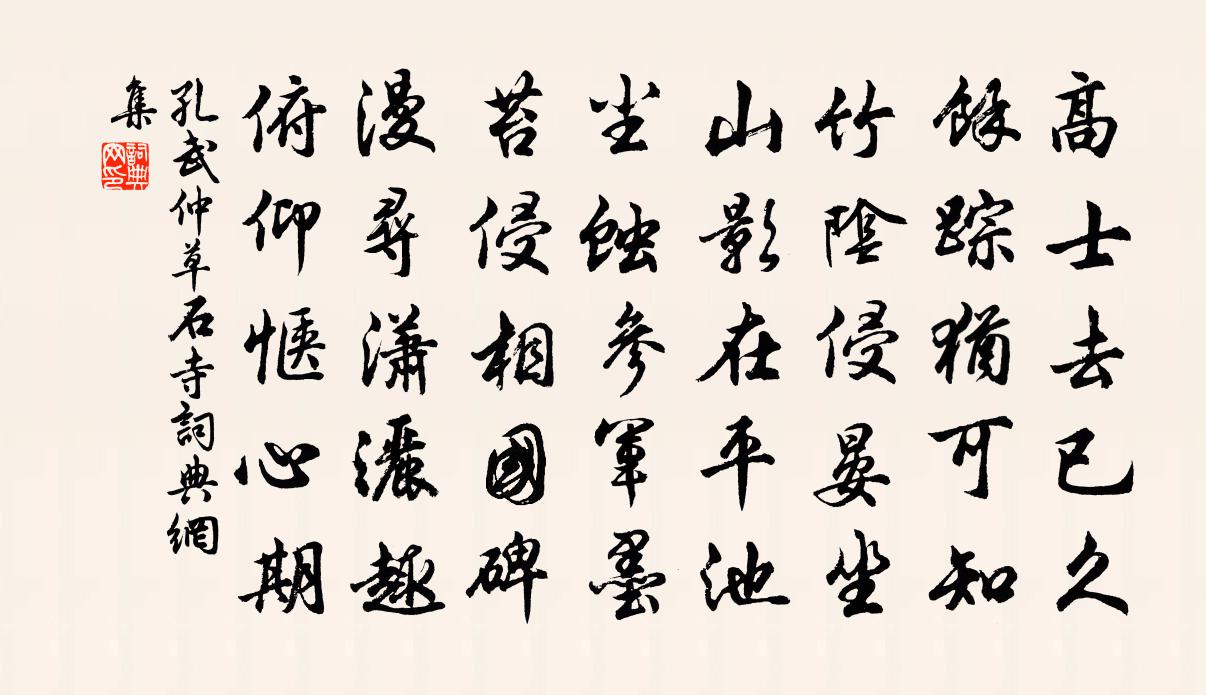 高士去已久
餘踪猶可知
竹陰侵晏坐
山影在平池
尘蝕參軍墨
苔侵相國碑
漫尋瀟灑趣
俯仰愜心期
孔武仲草石寺詞典網
集
詞典網印